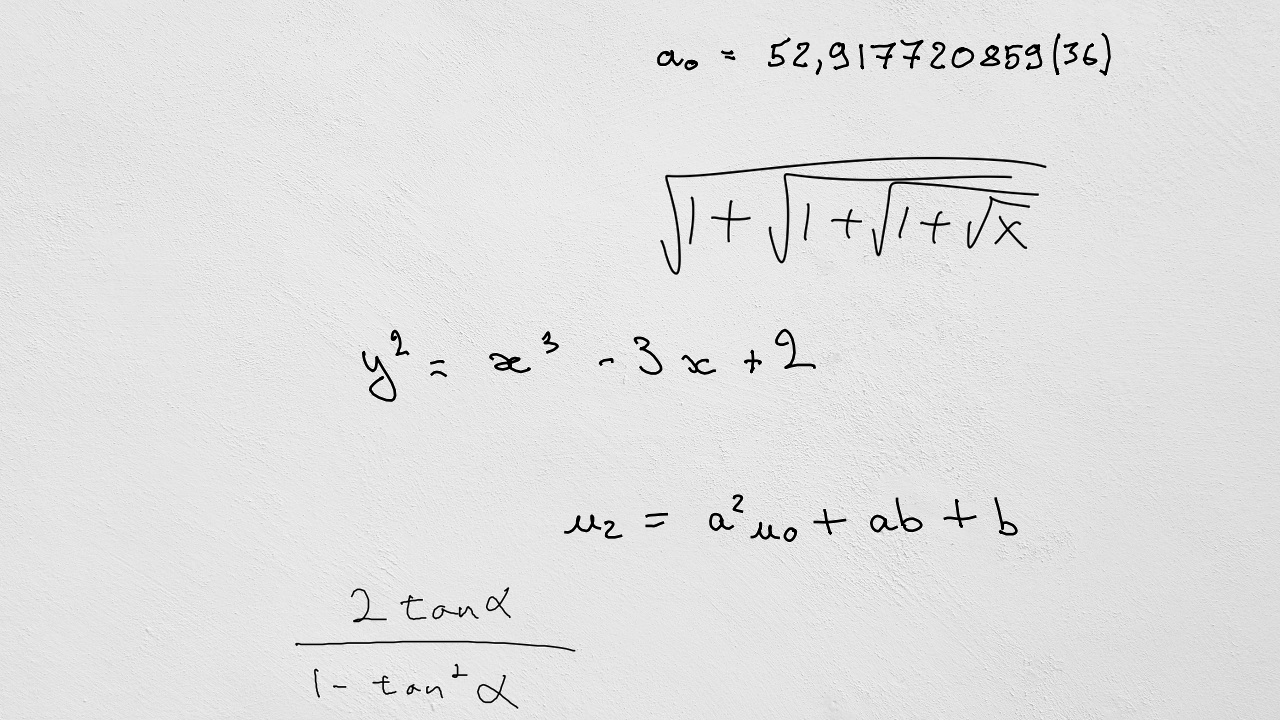 a₀ = 52,917720859(36)
√(1 + √(1 + √(1 + √x)))
y² = x³ - 3x + 2
u₂ = a²u₀ + ab + b
2 tan α
1 - tan² α